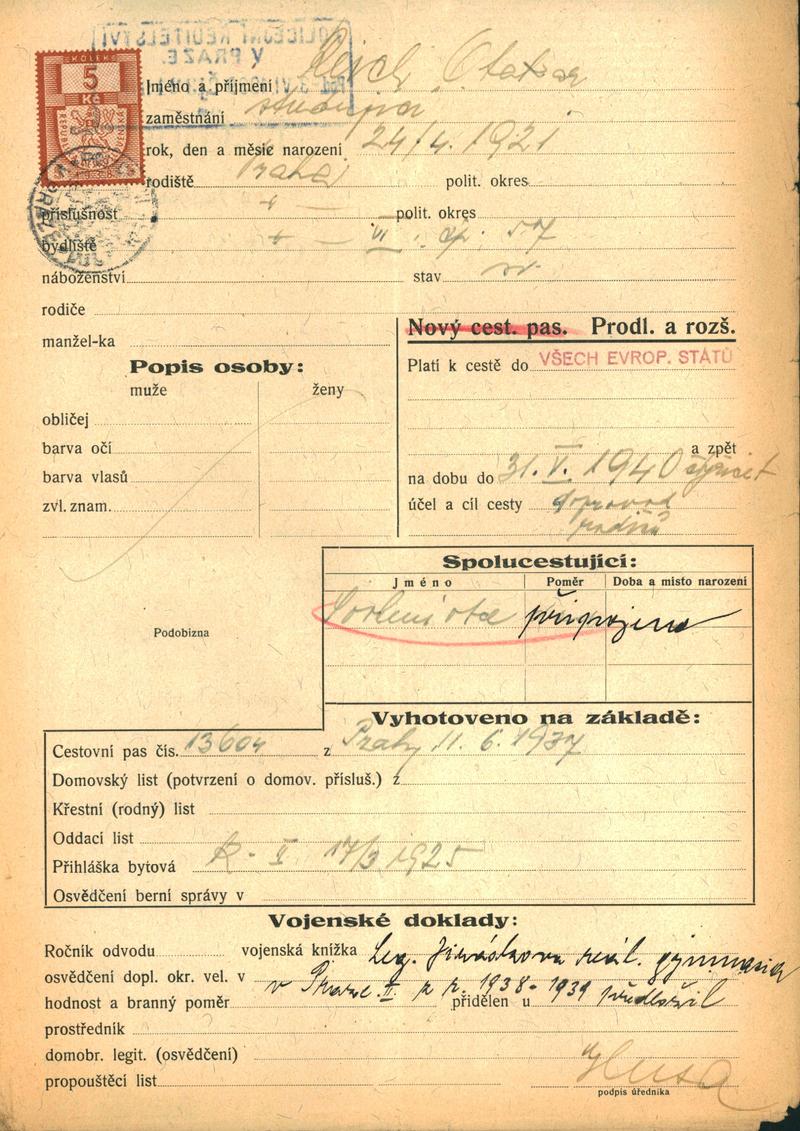 KOLEK
5
Kč
POLICEJNÍ ŘEDITELSTVÍ
V PRAZE.
Jméno a přijmení Otakar
zaměstnání studující
rok, den a měsíc narození 24/4. 1921
rodiště Praha polit. okres
příslušnost " — polit. okres
bydliště " — VI čp. 57
náboženství stav sv.
rodiče
manžel-ka
Nový cest. pas. Prodl. a rozš.
Platí k cestě do VŠECH EVROP. STÁTŮ
a zpět
na dobu do 31. V. 1940
účel a cíl cesty doprovod
rodičů
Popis osoby:
muže ženy
obličej
barva očí
barva vlasů
zvl. znam.
Podobizna
Spolucestující:
Jméno Poměr Doba a místo narození
připojeno
Vyhotoveno na základě:
Cestovní pas čís. 13604 z Prahy 11. 6. 1937
Domovský list (potvrzení o domov. přísluš.) z
Křestní (rodný) list
Oddací list
Přihláška bytová R - II 17/3 1925
Osvědčení berní správy v
Vojenské doklady:
Ročník odvodu vojenská knížka Leg. Jiráskova reál. gymnasia
osvědčení dopl. okr. vel. v v Praze II. z r. 1938-1939 předložil
hodnost a branný poměr přidělen u
prostředník
domobr. legit. (osvědčení)
propouštěcí list
Husa
podpis úředníka